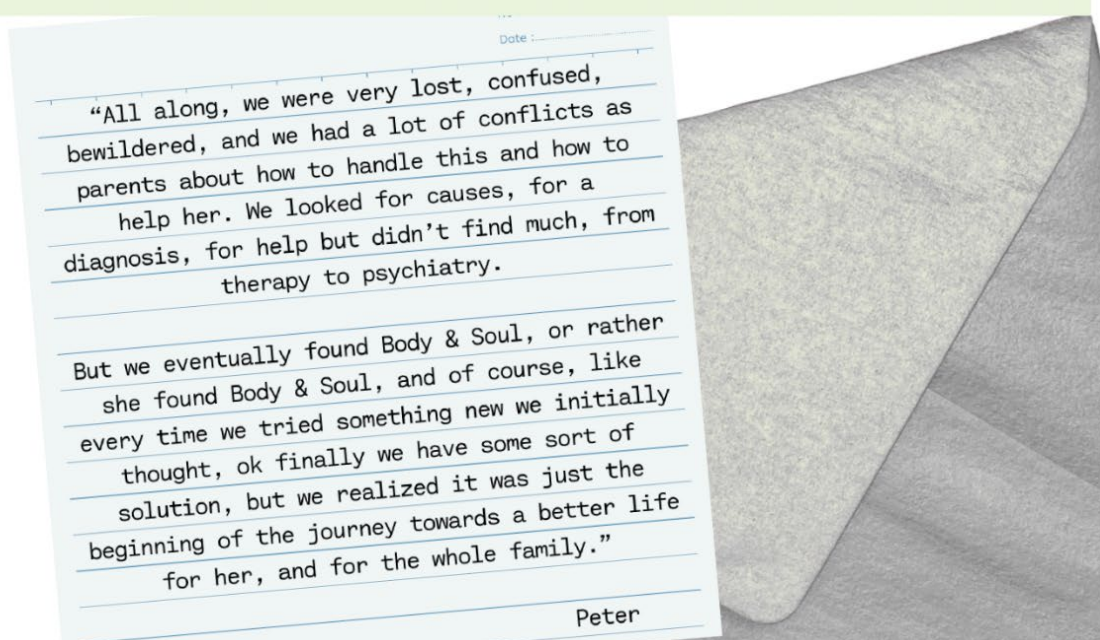 Date :
“All along, we were very lost, confused,
bewildered, and we had a lot of conflicts as
parents about how to handle this and how to
help her. We looked for causes, for a
diagnosis, for help but didn’t find much, from
therapy to psychiatry.
But we eventually found Body & Soul, or rather
she found Body & Soul, and of course, like
every time we tried something new we initially
thought, ok finally we have some sort of
solution, but we realized it was just the
beginning of the journey towards a better life
for her, and for the whole family.”
Peter